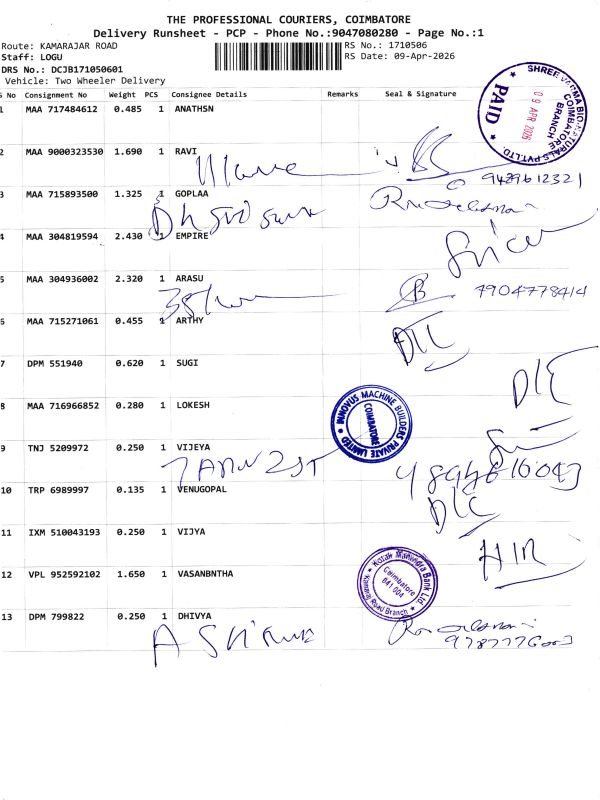 THE PROFESSIONAL COURIERS, COIMBATORE
Delivery Runsheet - PCP - Phone No.:9047080280 - Page No.:1
Route: KAMARAJAR ROAD
Staff: LOGU
DRS No.: DCJB171050601
Vehicle: Two Wheeler Delivery
RS No.: 1710506
RS Date: 09-Apr-2026
SHREE VARMA BIO NATURALS PVT.LTD
COIMBATORE BRANCH
09 APR 2026
PAID
No Consignment No Weight PCS Consignee Details Remarks Seal & Signature
1 MAA 717484612 0.485 1 ANATHSN
2 MAA 9000323530 1.690 1 RAVI
9429612321
3 MAA 715893500 1.325 1 GOPLAA
4 MAA 304819594 2.430 1 EMPIRE
5 MAA 304936002 2.320 1 ARASU
7904778414
6 MAA 715271061 0.455 1 ARTHY
7 DPM 551940 0.620 1 SUGI
8 MAA 716966852 0.280 1 LOKESH
INNOVUS MACHINE BUILDERS PRIVATE LIMITED
COIMBATORE
9 TNJ 5209972 0.250 1 VIJEYA
10 TRP 6989997 0.135 1 VENUGOPAL
11 IXM 510043193 0.250 1 VIJYA
12 VPL 952592102 1.650 1 VASANBNTHA
Kotak Mahindra Bank Ltd.
Coimbatore
641 004
Kamaraj Road Branch
13 DPM 799822 0.250 1 DHIVYA